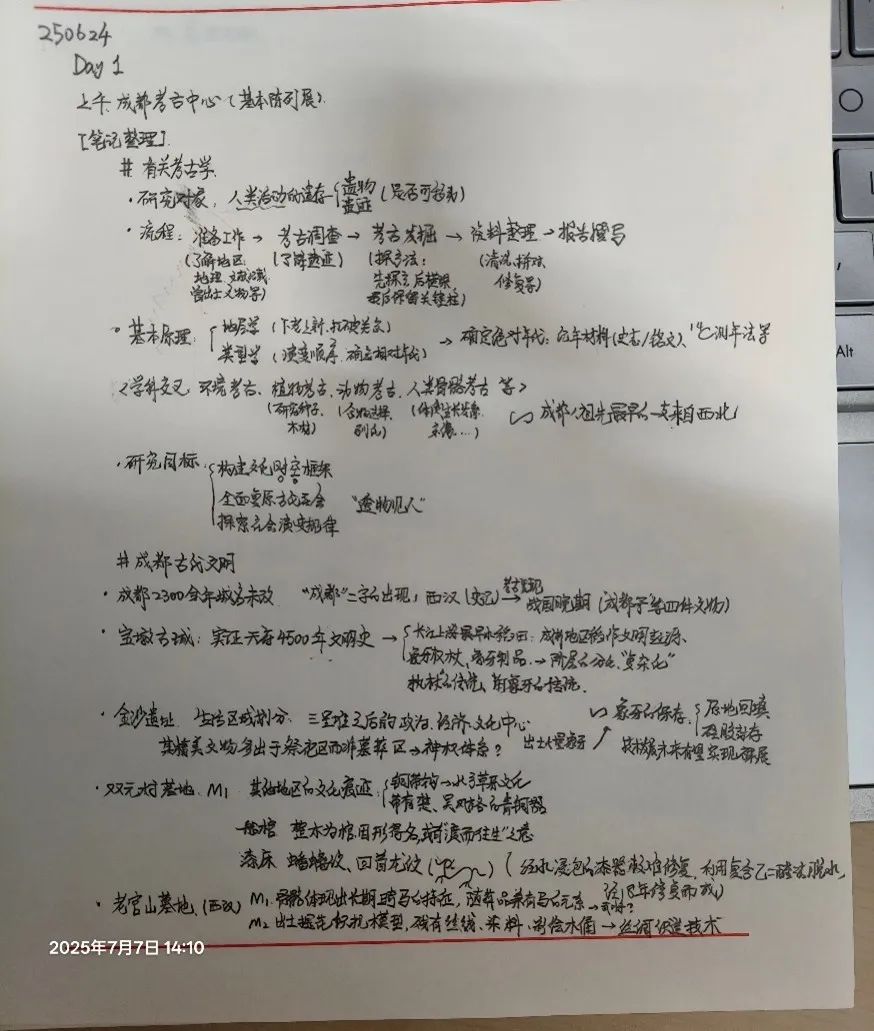 250624
Day 1
上午 成都考古中心（基本陈列展）
[笔记整理]
# 有关考古学
·研究对象：人类活动的遗存{遗物 遗迹（是否可移动）
·流程：准备工作→考古调查→考古发掘→资料整理→报告撰写
（了解地区 （了解遗迹） （探方法： （清洗、拼对、
地理、文献 先探方后 修复等）
曾出土文物等） 最后保留关键柱）
·基本原理：{地层学（下老上新，打破关系）
类型学（演变顺序，确立相对年代） → 确定绝对年代：纪年材料（史志/铭文）、¹⁴C测年法等
<学科交叉：环境考古、植物考古、动物考古、人类骨骼考古 等>
（研究种子、 （ （体质生长关系、
木材） 亲缘…） 成都人祖先最早的一支来自西北
·研究目标：{构建文化时空框架
全面复原古代社会 "透物见人"
探索社会演变规律
# 成都古代文明
·成都2300余年城名未改 "成都"二字的出现：西汉（史记）考古发现→战国晚期（成都矛等四件文物）
·宝墩古城：实证天府4500年文明史→{长江上游最早水稻田：成都地区稻作文明起源、
象牙权杖、象牙制品→阶层的分化、"复杂化"
执杖的传统、用象牙的传统.
·金沙遗址 生活区域划分 三星堆之后的政治、经济、文化中心 象牙的保存：{原地回填 硅胶封存
其精美文物多出于祭祀区而非墓葬区→神权体系？ 出土大量象牙 技术 未来有望实现 展
·双元村墓地 M1 其他地区的文化痕迹：{铜带钩→北方草原文化
带有楚、吴 风格的青铜器
船棺 整木为棺，因形得名，或有"渡而往生"之意
漆床 蟠螭纹、回首龙纹（ ）（经水浸泡的漆器极难修复，利用复合乙二醛法脱水，
经 年修复而成）
·老官山墓地（西汉） M1 骨骼体现出长期骑马的特征，随葬品亦有马的元素→ ？
M2 出土提花织机模型，残有丝线、染料、 →丝绸织造技术
2025年7月7日 14:10